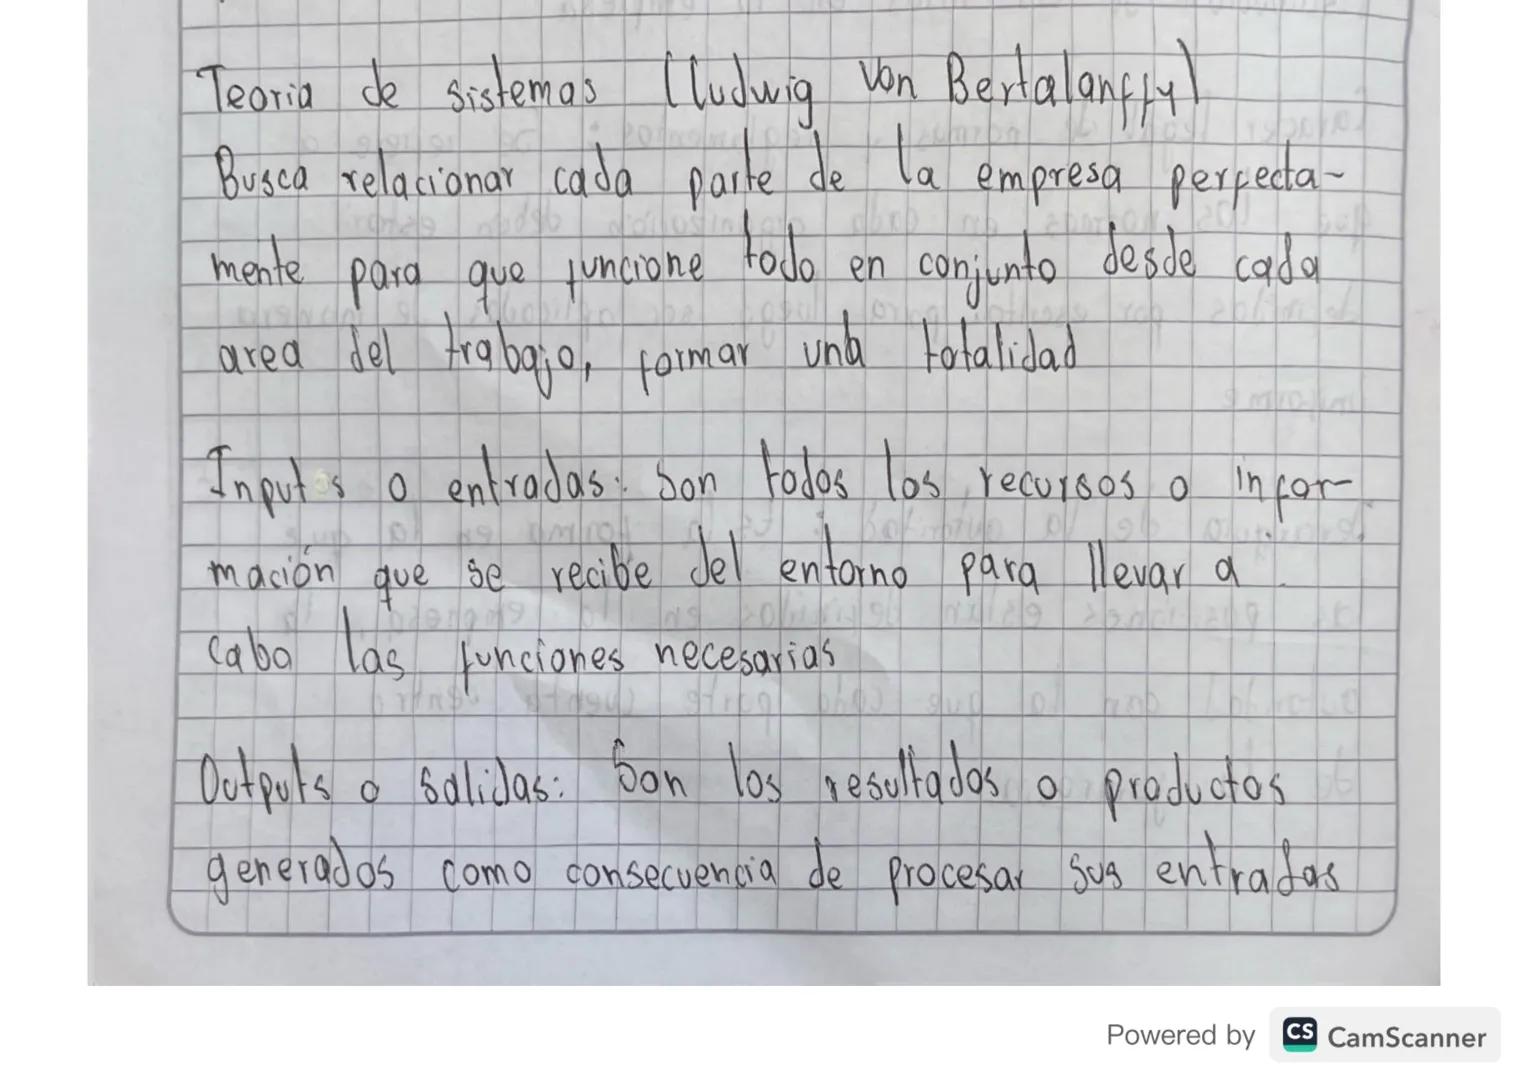 Teoria de sistemas (Ludwig Von Bertalanffy)
Busca relacionar cada parte de la empresa perfecta-
mente para que funcione todo en conjunto desde cada
area del trabajo, formar una totalidad
Inputs o entradas: Son todos los recursos o infor-
mación que se recibe del entorno para llevar a
cabo las funciones necesarias
Outputs o salidas: Son los resultados o productos
generados como consecuencia de procesar sus entradas
Powered by CS CamScanner